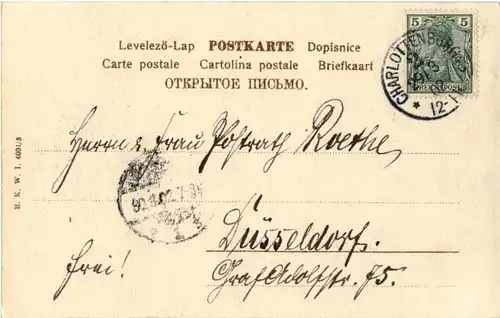 Levelező-Lap POSTKARTE Dopisnice
Carte postale Cartolina postale Briefkaart
ОТКРЫТОЕ ПИСЬМО.
5 5
CHARLOTTENBURG
* 12-1
Herrn u. Frau Postrath Roethe,
Düsseldorf.
frei!
Graf Adolfstr. 75.
B. K. W. I. 4001/3